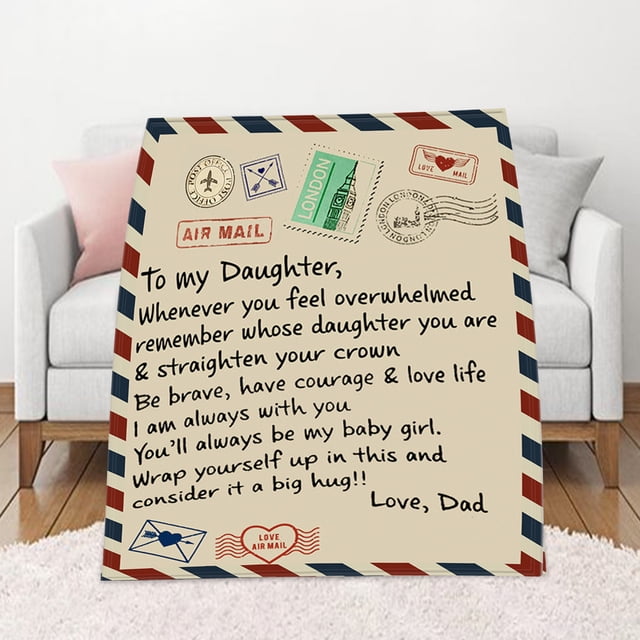 POST OFFICE POST OFFICE
LONDON
LOVE MAIL
LONDON LONDON LONDON
AIR MAIL
To my Daughter,
Whenever you feel overwhelmed
remember whose daughter you are
& straighten your crown
Be brave, have courage & love life
I am always with you
You'll always be my baby girl.
Wrap yourself up in this and
consider it a big hug!!
Love, Dad
LOVE
AIR MAIL